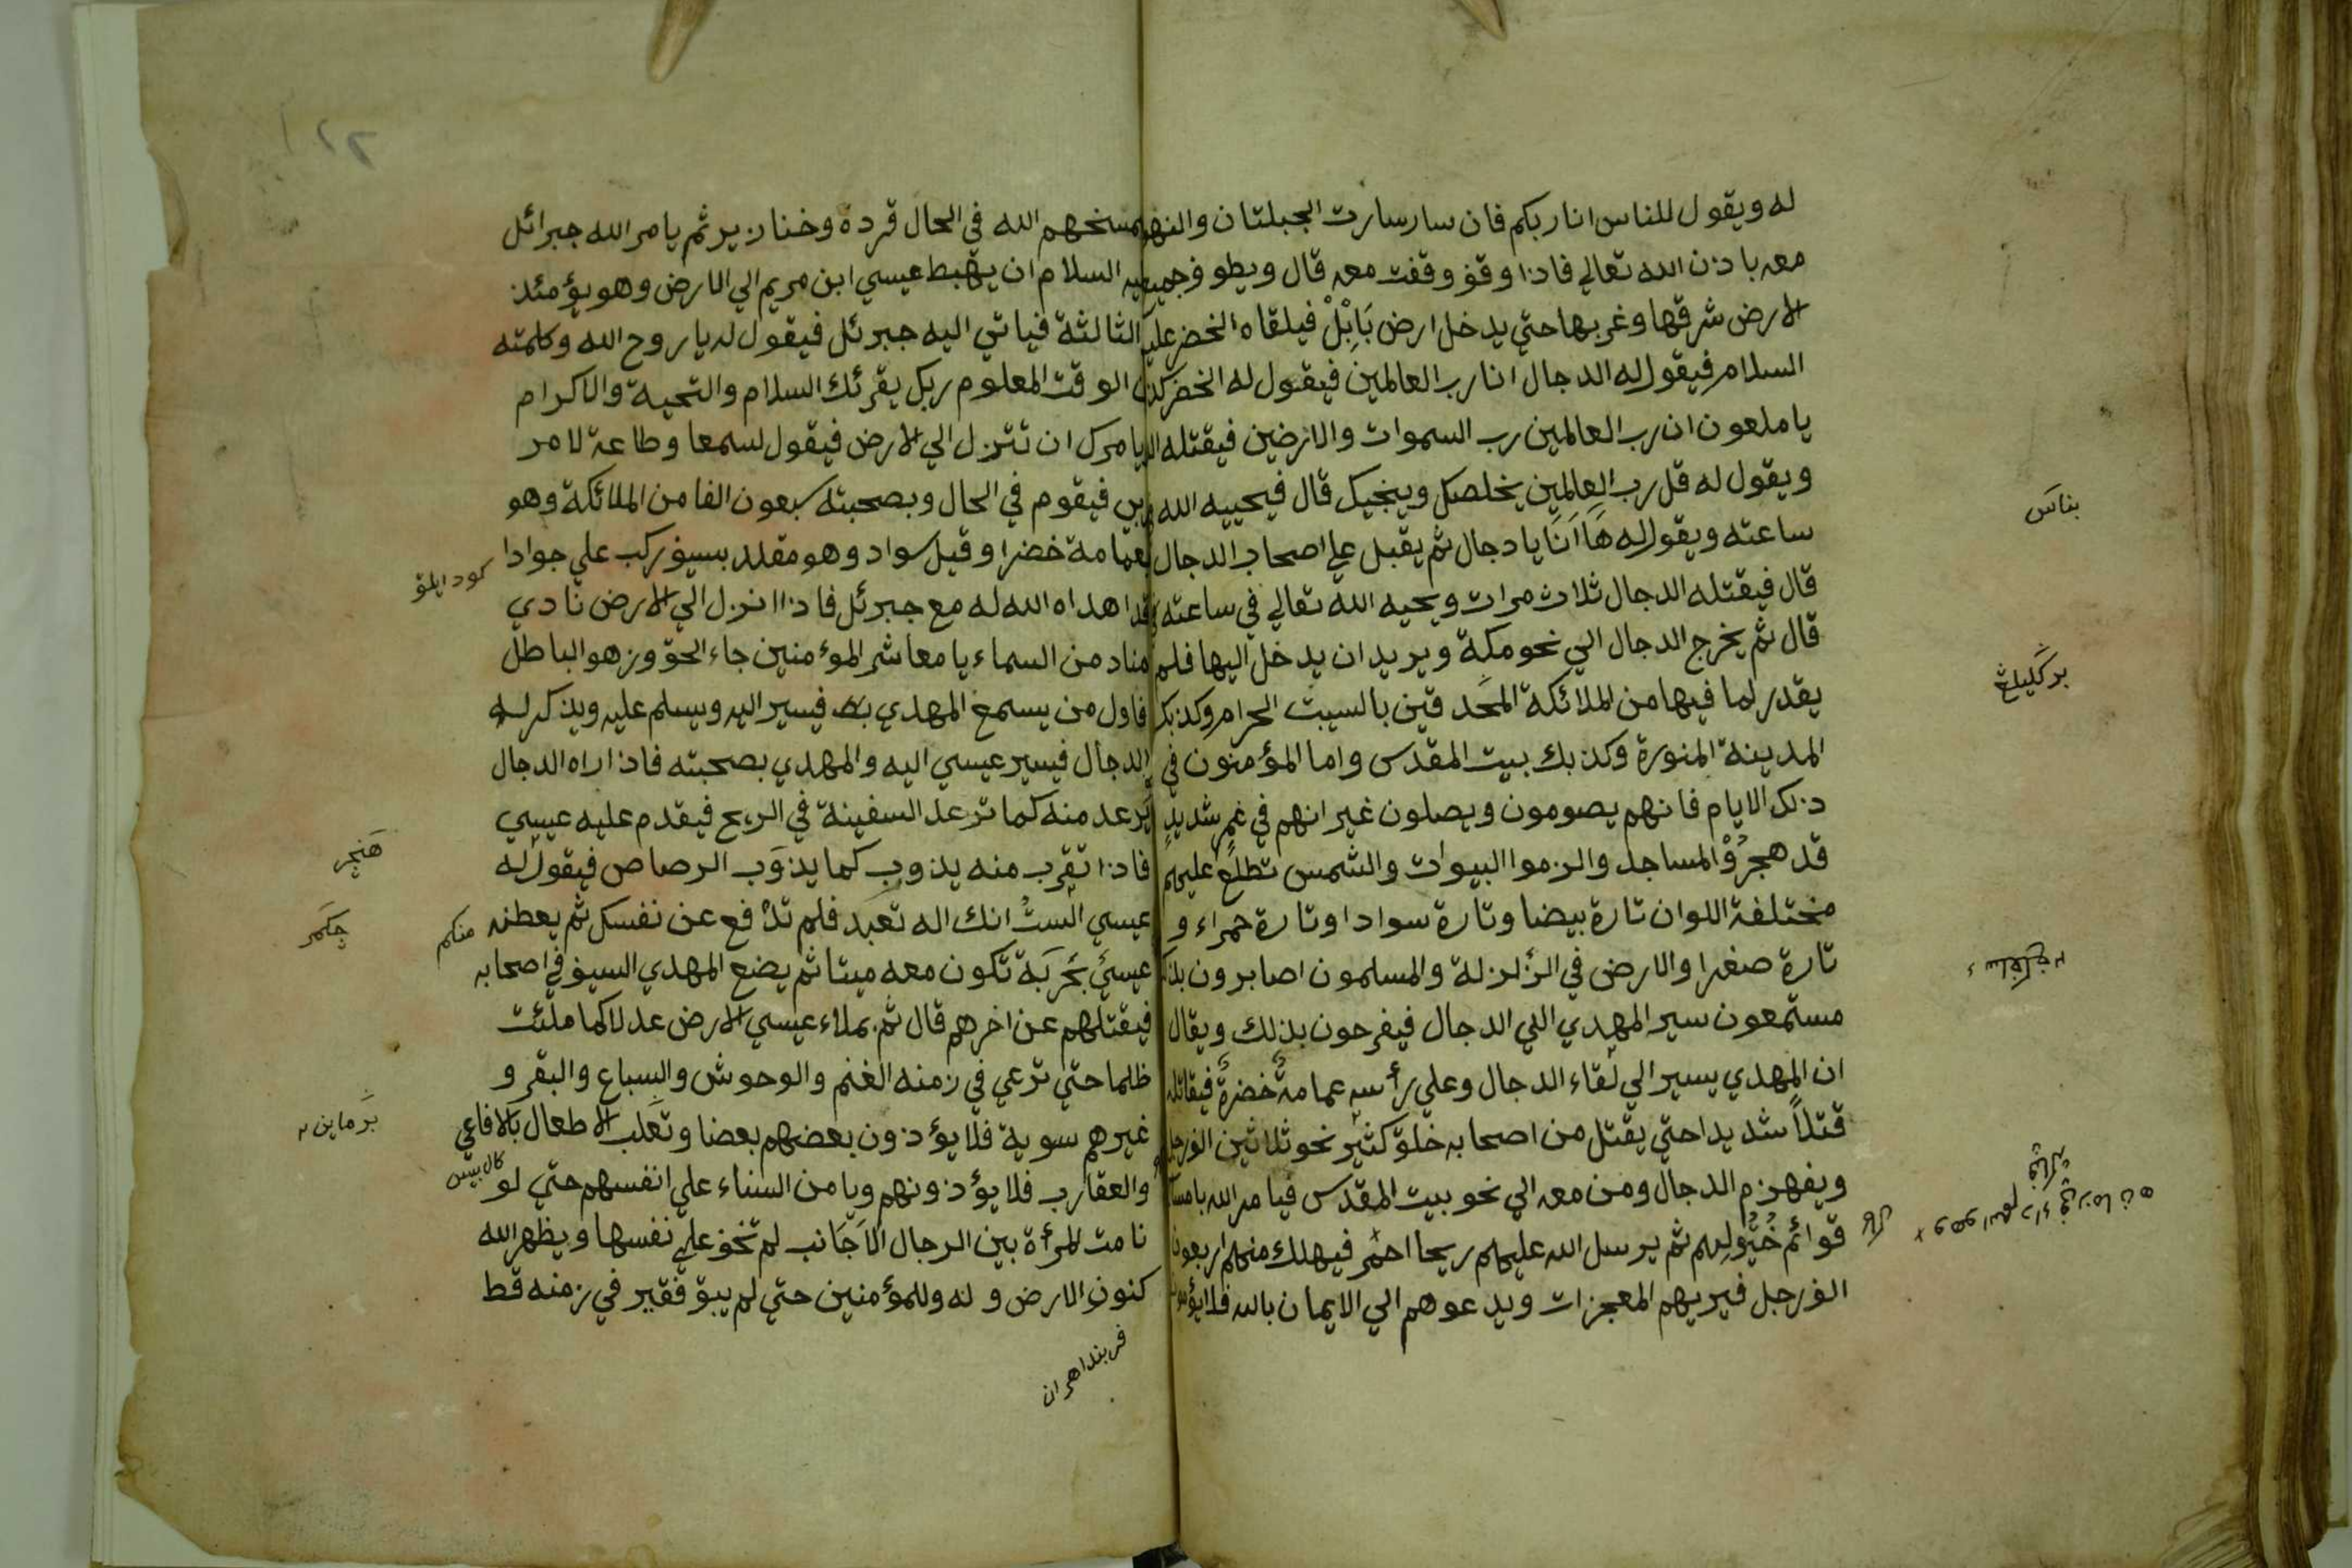 له ويقول للناس انا ربكم فان سار سارت الجبلتان والنهر
معه باذن الله تعالي فاذا وقف وقفت معه قال ويطوف جميع
الارض شرقها وغربها حتي يدخل ارض بَابِلْ فيلقاه الخضر عليه
السلام فيقول له الدجال انا رب العالمين فيقول له الخضر كذبت
يا ملعون ان رب العالمين رب السموات والارضين فيقتله
ويقول له قل رب العالمين يخلصك وينجيك قال فيحييه الله
ساعته ويقول له هَا اَنَا يا دجال ثم يقبل علي اصحاب الدجال
قال فيقتله الدجال ثلاث مرات ويحيه الله تعالي في ساعته
قال ثم يخرج الدجال الي نحو مكة ويريد ان يدخل اليها فلم
يقدر لما فيها من الملائكة المحدقين بالسيت الحرام وكذبك
المدينة المنورة وكذبك بيت المقدس واما المؤمنون في
ذلك الايام فانهم يصومون ويصلون غير انهم في غم شديد
قد هجرُوْا المساجد والزموا البيوات والشمس تطلع عليهم
مختلفة اللوان تارة بيضا وتارة سوادا وتارة حمراء و
تارة صغرا والارض في الزلزلة والمسلمون اصابرون
مستمعون سير المهدي الي الدجال فيفرحون بذلك ويقال
ان المهدي يسير الي لقاء الدجال وعلي رأسه عمامة خضرة فيقاتله
قتلاً شديدا حتي يقتل من اصحابه خلق كثير نحو ثلاثين الف رجل
وينهزم الدجال ومن معه الي نحو بيت المقدس فيامر الله بامساك
قوائم خُيُولِهم ثم يرسل الله عليهم ريحا احمر فيهلك منهم اربعون
الف رجل فيريهم المعجزات ويدعوهم الي الايمان بالله فلا يؤمنون
بناس
وهو انهم داء في زمانه
يمسخهم الله في الحال قردة وخنازير ثم يامر الله جبرائل
عليه السلام ان يهبط عيسي ابن مريم الي الارض وهو يؤمئذ
الثالثة فياتي اليه جبرئل فيقول له يا روح الله وكلمته
الوقت المعلوم ربك يقرئك السلام والتحية والاكرام
يامرك ان تنزل الي الارض فيقول لسمعا وطاعة لامر
ربي فيقوم في الحال وبصحبته سبعون الفا من الملائكة وهو
بعمامة خضرا وقيل سواد وهو مقلد بسيف ركب علي جوادا
قد اهداه الله له مع جبرئل فاذا انزل الي الارض نادي
مناد من السماء يا معاشر المؤمنين جاء الحق وزهو الباطل
فاول من يسمع المهدي به فيسير اليه ويسلم عليه ويذكر له
الدجال فيسير عيسي اليه والمهدي بصحبته فاذا راه الدجال
يرعد منه كما ترعد السفينة في الريح فيقدم عليه عيسي
فاذا تقرب منه يذوب كما يذوَب الرصاص فيقول له
عيسي الستُ انك اله تعبد فلم تدْفع عن نفسك ثم يعطنه
عيسي بحَربَة تكون معه ميتا ثم يضع المهدي السيف في اصحابه
فيقتلهم عن اخرهم قال ثم يملاء عيسي الارض عدلا كما ملئت
ظلما حتي ترعي في زمنه الغنم والوحوش والسباع والبقر و
غيرهم سوية فلا يؤذون بعضهم بعضا وتعلب الاطعال بالافاعي
والعقارب فلا يؤذونهم ويامن النساء علي انفسهم حتي لو
نامت المرأة بين الرجال الاَجَانب لم تخف علي نفسها ويظهر الله
كنون الارض وله وللمؤمنين حتي لم يبق فقير في زمنه قط
هَنجر
چكَمَر
منكم
بَرماين ٢